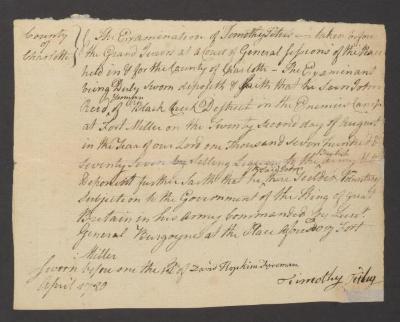 County of Charlotte
The Examination of Timothy Titus — taken before
the Grand Jurors at a Court of General Sessions of the Peace
held in & for the County of Charlotte — The Examinant
being Duly Sworn deposeth & saith that he saw John
Yeoman
Reid of Black Creek District in the Enemies Camp
at Fort Miller on the Twenty Second day of August
in the Year of our Lord one Thousand Seven Hundred &
British
Seventy Seven by Selling Liquor to the army
Deponent further saith that he there
Subjection to the Government of the King of great
Britain in his Army Commanded by Lieut
General Burgoyne at the Place aforesd Fort
Miller
Sworn before me the of David Hopkins foreman
April 1780
Timothy Titus